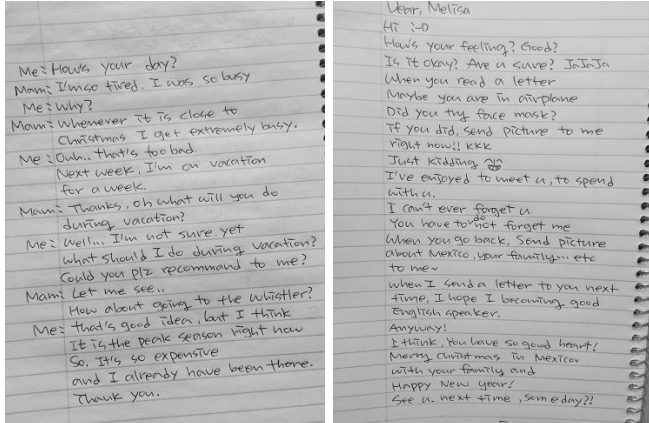 Me: How's your day?
Mam: I'm so tired, I was so busy
Me: Why?
Mam: Whenever it is close to
Christmas I get extremely busy.
Me: Ouh.. that's too bad.
Next week, I'm on vacation
for a week.
Mam: Thanks, oh what will you do
during vacation?
Me: Well... I'm not sure yet
what should I do during vacation?
Could you plz recommand to me?
Mam: Let me see..
How about going to the whistler?
Me: that's good idea, but I think
It is the peak season right now
So, It's so expensive
and I already have been there.
Thank you.
Dear, Melisa
Hi :-D
How's your feeling? Good?
Is it okay? Are u sure? JaJaJa
When you read a letter
Maybe you are in airplane
Did you try face mask?
if you did, send picture to me
right now!! kkk
Just kidding
I've enjoyed to meet u, to spend
with u.
I can't ever forget u
You have to do not forget me
When you go back, Send picture
about Mexico, your family... etc
to me~
when I send a letter to you next
time, I hope I becoming good
English speaker.
Anyway!
I think, You have so good heart!
Merry Christmas in Mexico
with your family and
Happy New year!
See u. next time, someday?!